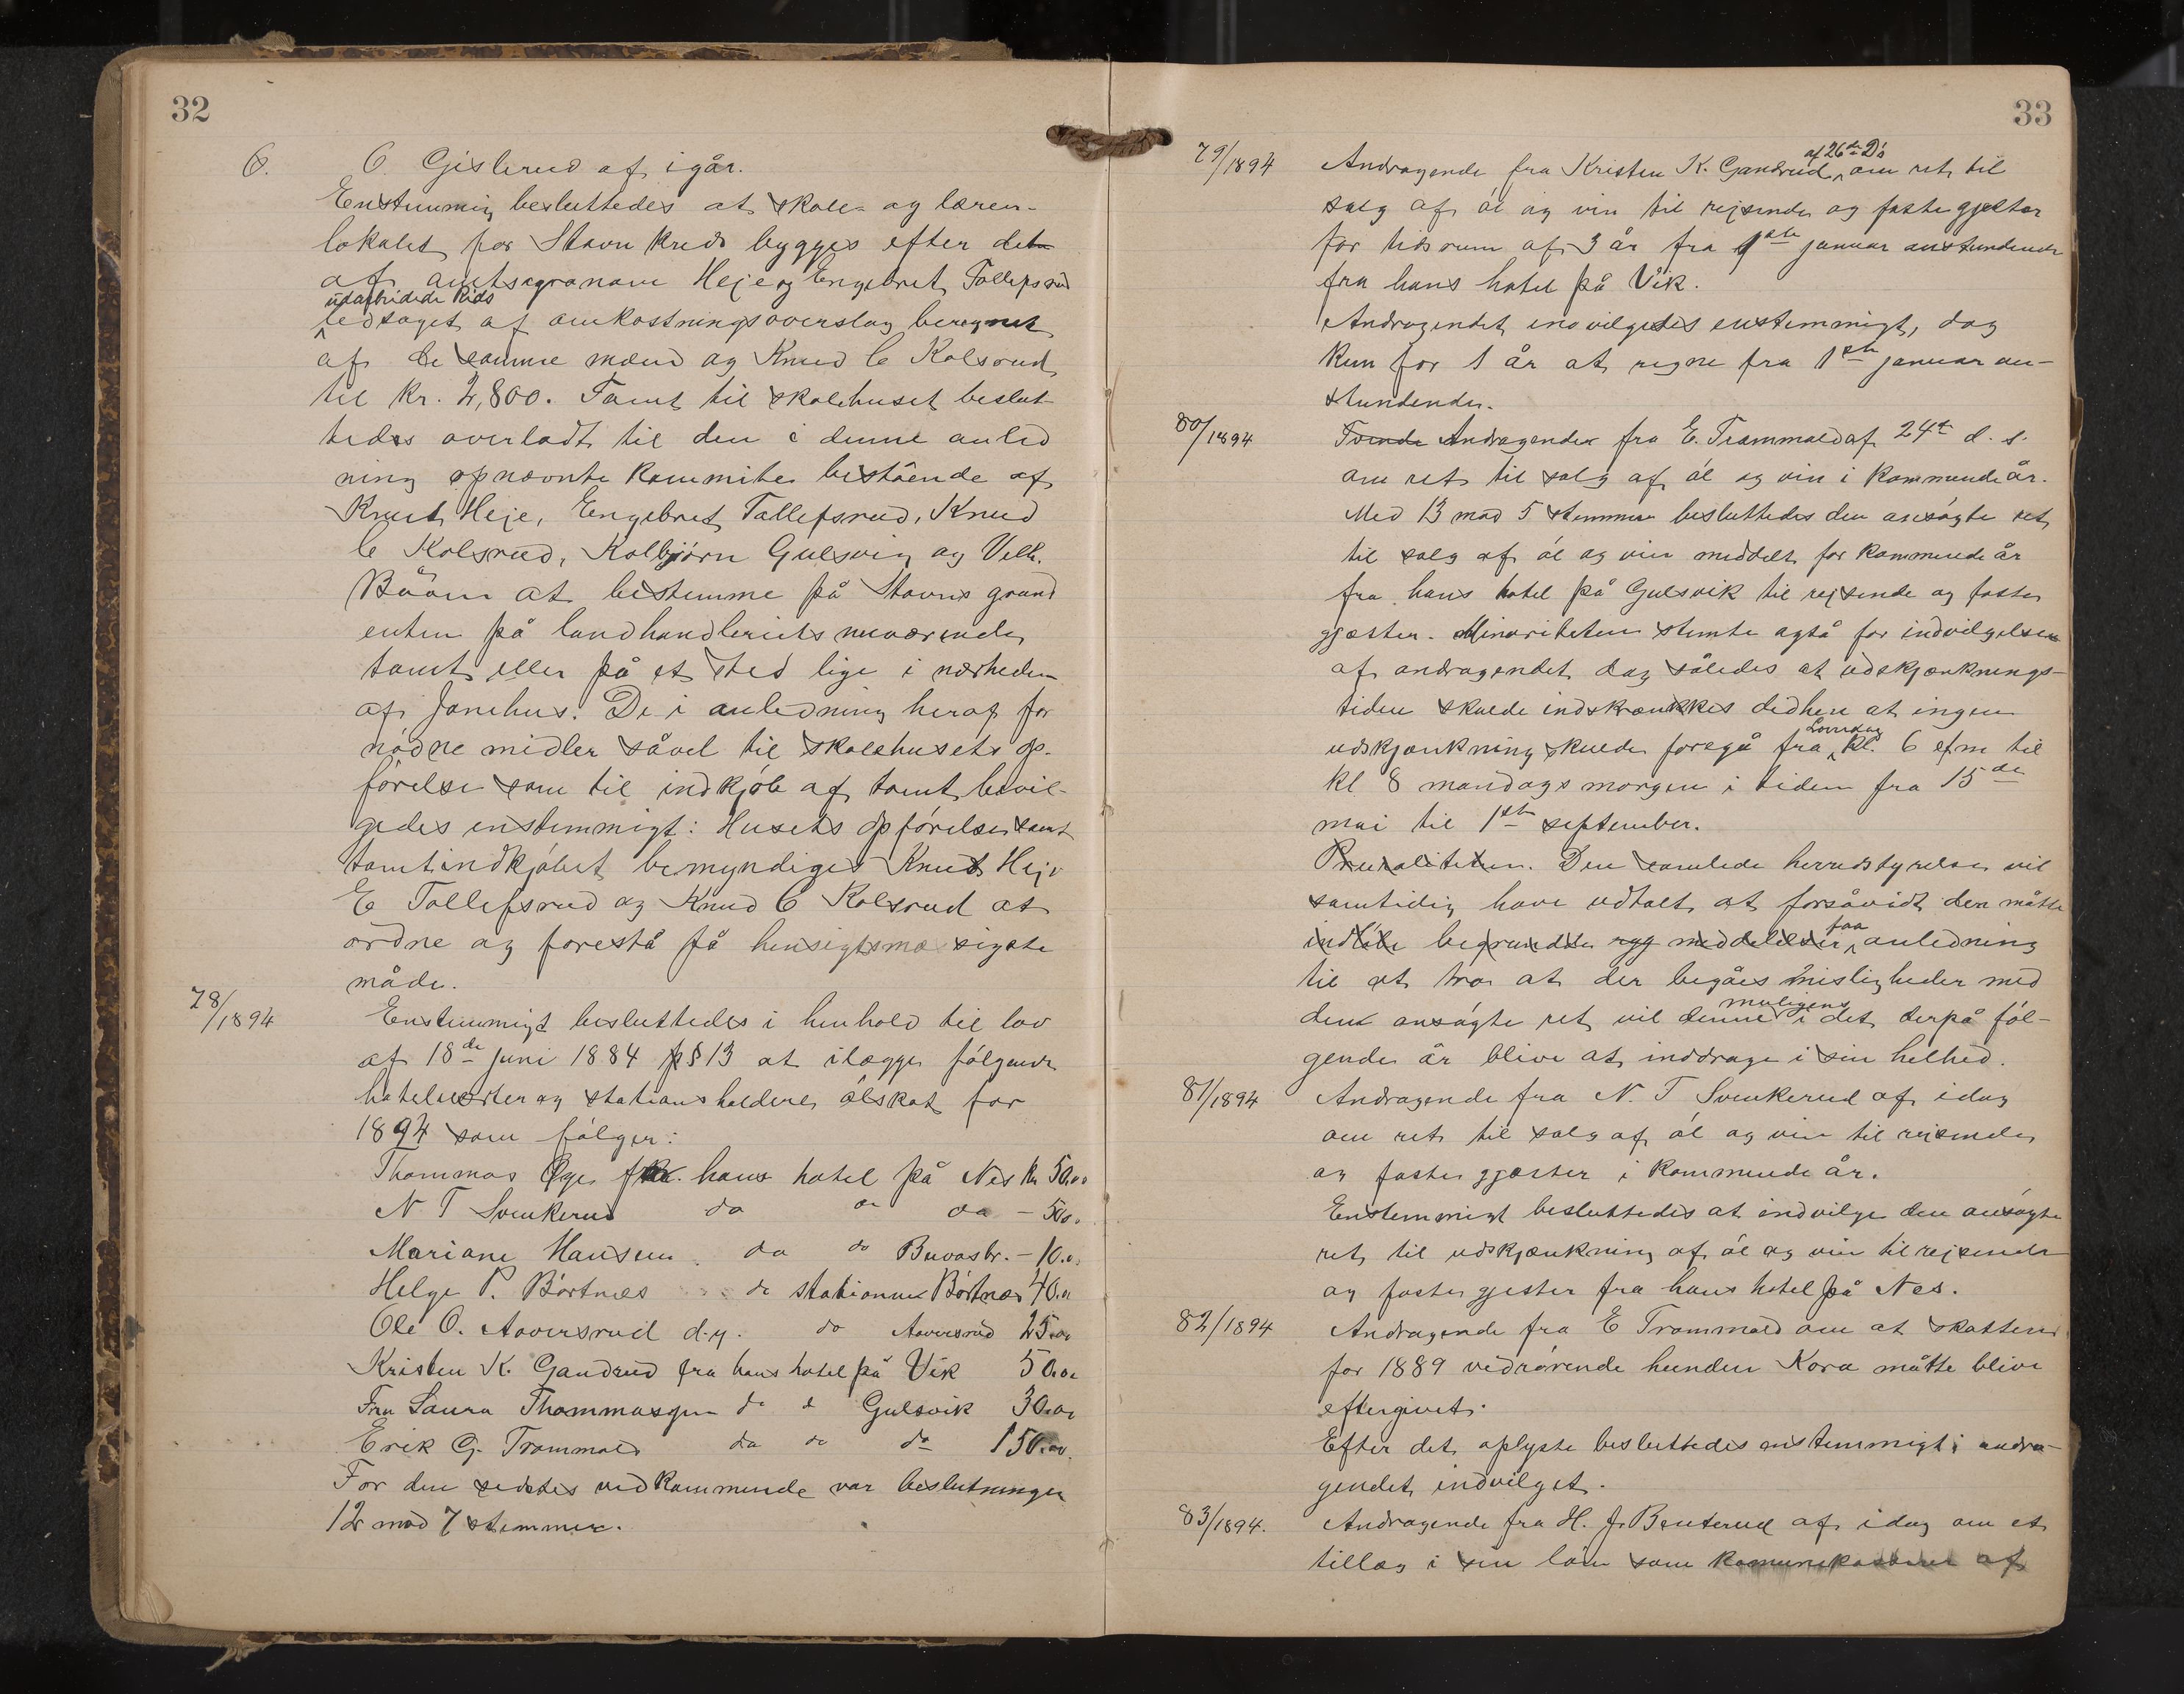 32
6. O. Gislerud af igår.
Enstemmig besluttedes at skole- og lærer-
lokalet for Stavn kreds bygges efter det
af amtsagronom Heje og Engebret Tollefsrud
udarbeidede Rids
ledsaget af omkostningsoverslag beregnet
af de samme mænd og Knud C Kolsrud
til kr. 2,800. Tomt til skolehuset beslut-
tedes overladt til den i denne anled
ning opnævnte kommite bestående af
Knut Heje, Engebret Tollefsrud, Knud
C Kolsrud, Kolbjørn Gulsvig og Velh.
Bååm at bestemme på Stavns grund
enten på landhandleriets nuværende
tomt eller på et sted lige i nærheden
af Jonehus. De i anledning heraf for
nödne midler såvel til skolehusets op-
förelse som til indkjöb af tomt bevil-
gedes enstemmigt: Husets opförelse samt
tomtindkjöbet bemyndiges Knut Heje
E Tollefsrud og Knud C Kolsrud at
ordne og forestå på hensigtsmæssigste
måde.
78/1894 Enstemmigt besluttedes i henhold til lov
af 18de juni 1884 § 13 at ilægge fölgende
hotelværter og stationsholdere ölskat for
1894 som fölger:
Thommas Öye fra hans hotel på Nes kr 50.00
N T Svenkerud do do do - 50.
Mariane Hansen do do Buvasbr. - 10.
Helge P. Börtnes do stationen Börtnes 40.
Ole O. Aaversrud d.y. do Aaversrud 25.00
Kristen K. Gandrud fra hans hotel på Vik 50.00
Fru Laura Thommasgen do do Gulsvik 30.00
Erik G. Trommald do do do 150.00.
For den sidstes vedkommende var beslutningen
12 mod 7 stemmer.
33
79/1894 Andragende fra Kristen K. Gandrud af 26de Ds om ret til
salg af öl og vin til rejsende og faste gjester
for tidsrum af 3 år fra 1ste januar anstundende
fra hans hotel på Vik.
Andragendet indvilgedes enstemmigt, dog
kun for 1 år at regne fra 1ste januar an-
stundende.
80/1894 Andragender fra E. Trommald af 24de d. s.
om ret til salg af öl og vin i kommende år.
Med 13 mod 5 stemmer besluttedes den ansögte ret
til salg af öl og vin meddelt for kommende år
fra hans hotel på Gulsvik til rejsende og faste
gjæster. Minoriteten stemte også for indvilgelsen
af andragendet dog således at udskjænknings-
tiden skulde indskrænkes dedhen at ingen
udskjænkning skulde foregå fra Löverdag kl. 6 efm til
kl 8 mandags morgen i tiden fra 15de
mai til 1ste september.
Pluraliteten. Den samlede herredstyrelse vil
samtidig have udtalt at forsåvidt den måtte
indlöbe begrundte meddelelser faa anledning
til at tro at der begåes misligheder med
den ansögte ret vil denne muligens i det derpå föl-
gende år blive at inddrage i sin helhed.
81/1894 Andragende fra N. T Svenkerud af idag
om ret til salg af öl og vin til rejsende
og faste gjæster i kommende år.
Enstemmigt besluttedes at indvilge den ansögte
ret til udskjænkning af öl og vin til rejsende
og faste gjester fra hans hotel på Nes.
82/1894 Andragende fra E Trommald om at skatten
for 1889 vedrörende hunden Kora måtte blive
eftergivet.
Efter det oplyste besluttedes enstemmigt andra-
gendet indvilget.
83/1894. Andragende fra H. J. Benterud af idag om et
tillæg i sin lön som af